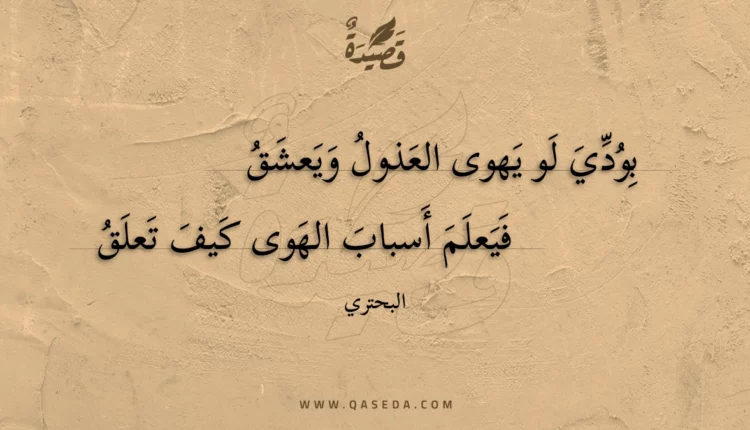 قَصِيدَةٌ
بِوُدِّيَ لَو يَهوى العَذولُ وَيَعشَقُ
فَيَعلَمَ أَسبابَ الهَوى كَيفَ تَعلَقُ
البحتري
WWW.QASEDA.COM